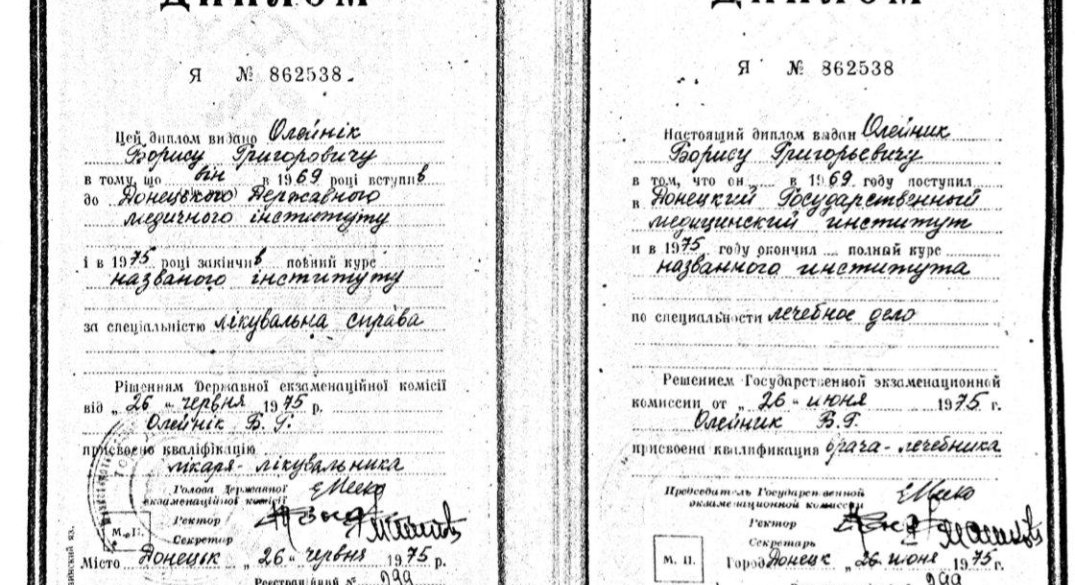 ДИПЛОМ
Я № 862538
Цей диплом видано Олейнік
Борису Григоровичу
в тому, що він в 1969 році вступив
до Донецького Державного
медичного інституту
і в 1975 році закінчив повний курс
названого інституту
за спеціальністю лікувальна справа
Рішенням Державної екзаменаційної комісії
від „ 26 “ червня 1975 р.
Олейнік Б. Г.
присвоєно кваліфікацію
лікаря-лікувальника
Голова Державної
екзаменаційної комісії
Ректор
М. П.
Секретар
Місто Донецьк „ 26 “ червня 1975 р.
Реєстраційний №
ДИПЛОМ
Я № 862538
Настоящий диплом выдан Олейник
Борису Григорьевичу
в том, что он в 1969 году поступил
в Донецкий Государственный
медицинский институт
и в 1975 году окончил полный курс
названного института
по специальности лечебное дело
Решением Государственной экзаменационной
комиссии от „ 26 “ июня 1975 г.
Олейник Б. Г.
присвоена квалификация врача-лечебника
Председатель Государственной
экзаменационной комиссии
Ректор
Секретарь
М. П.
Город Донецк „ 26 “ июня 1975 г.